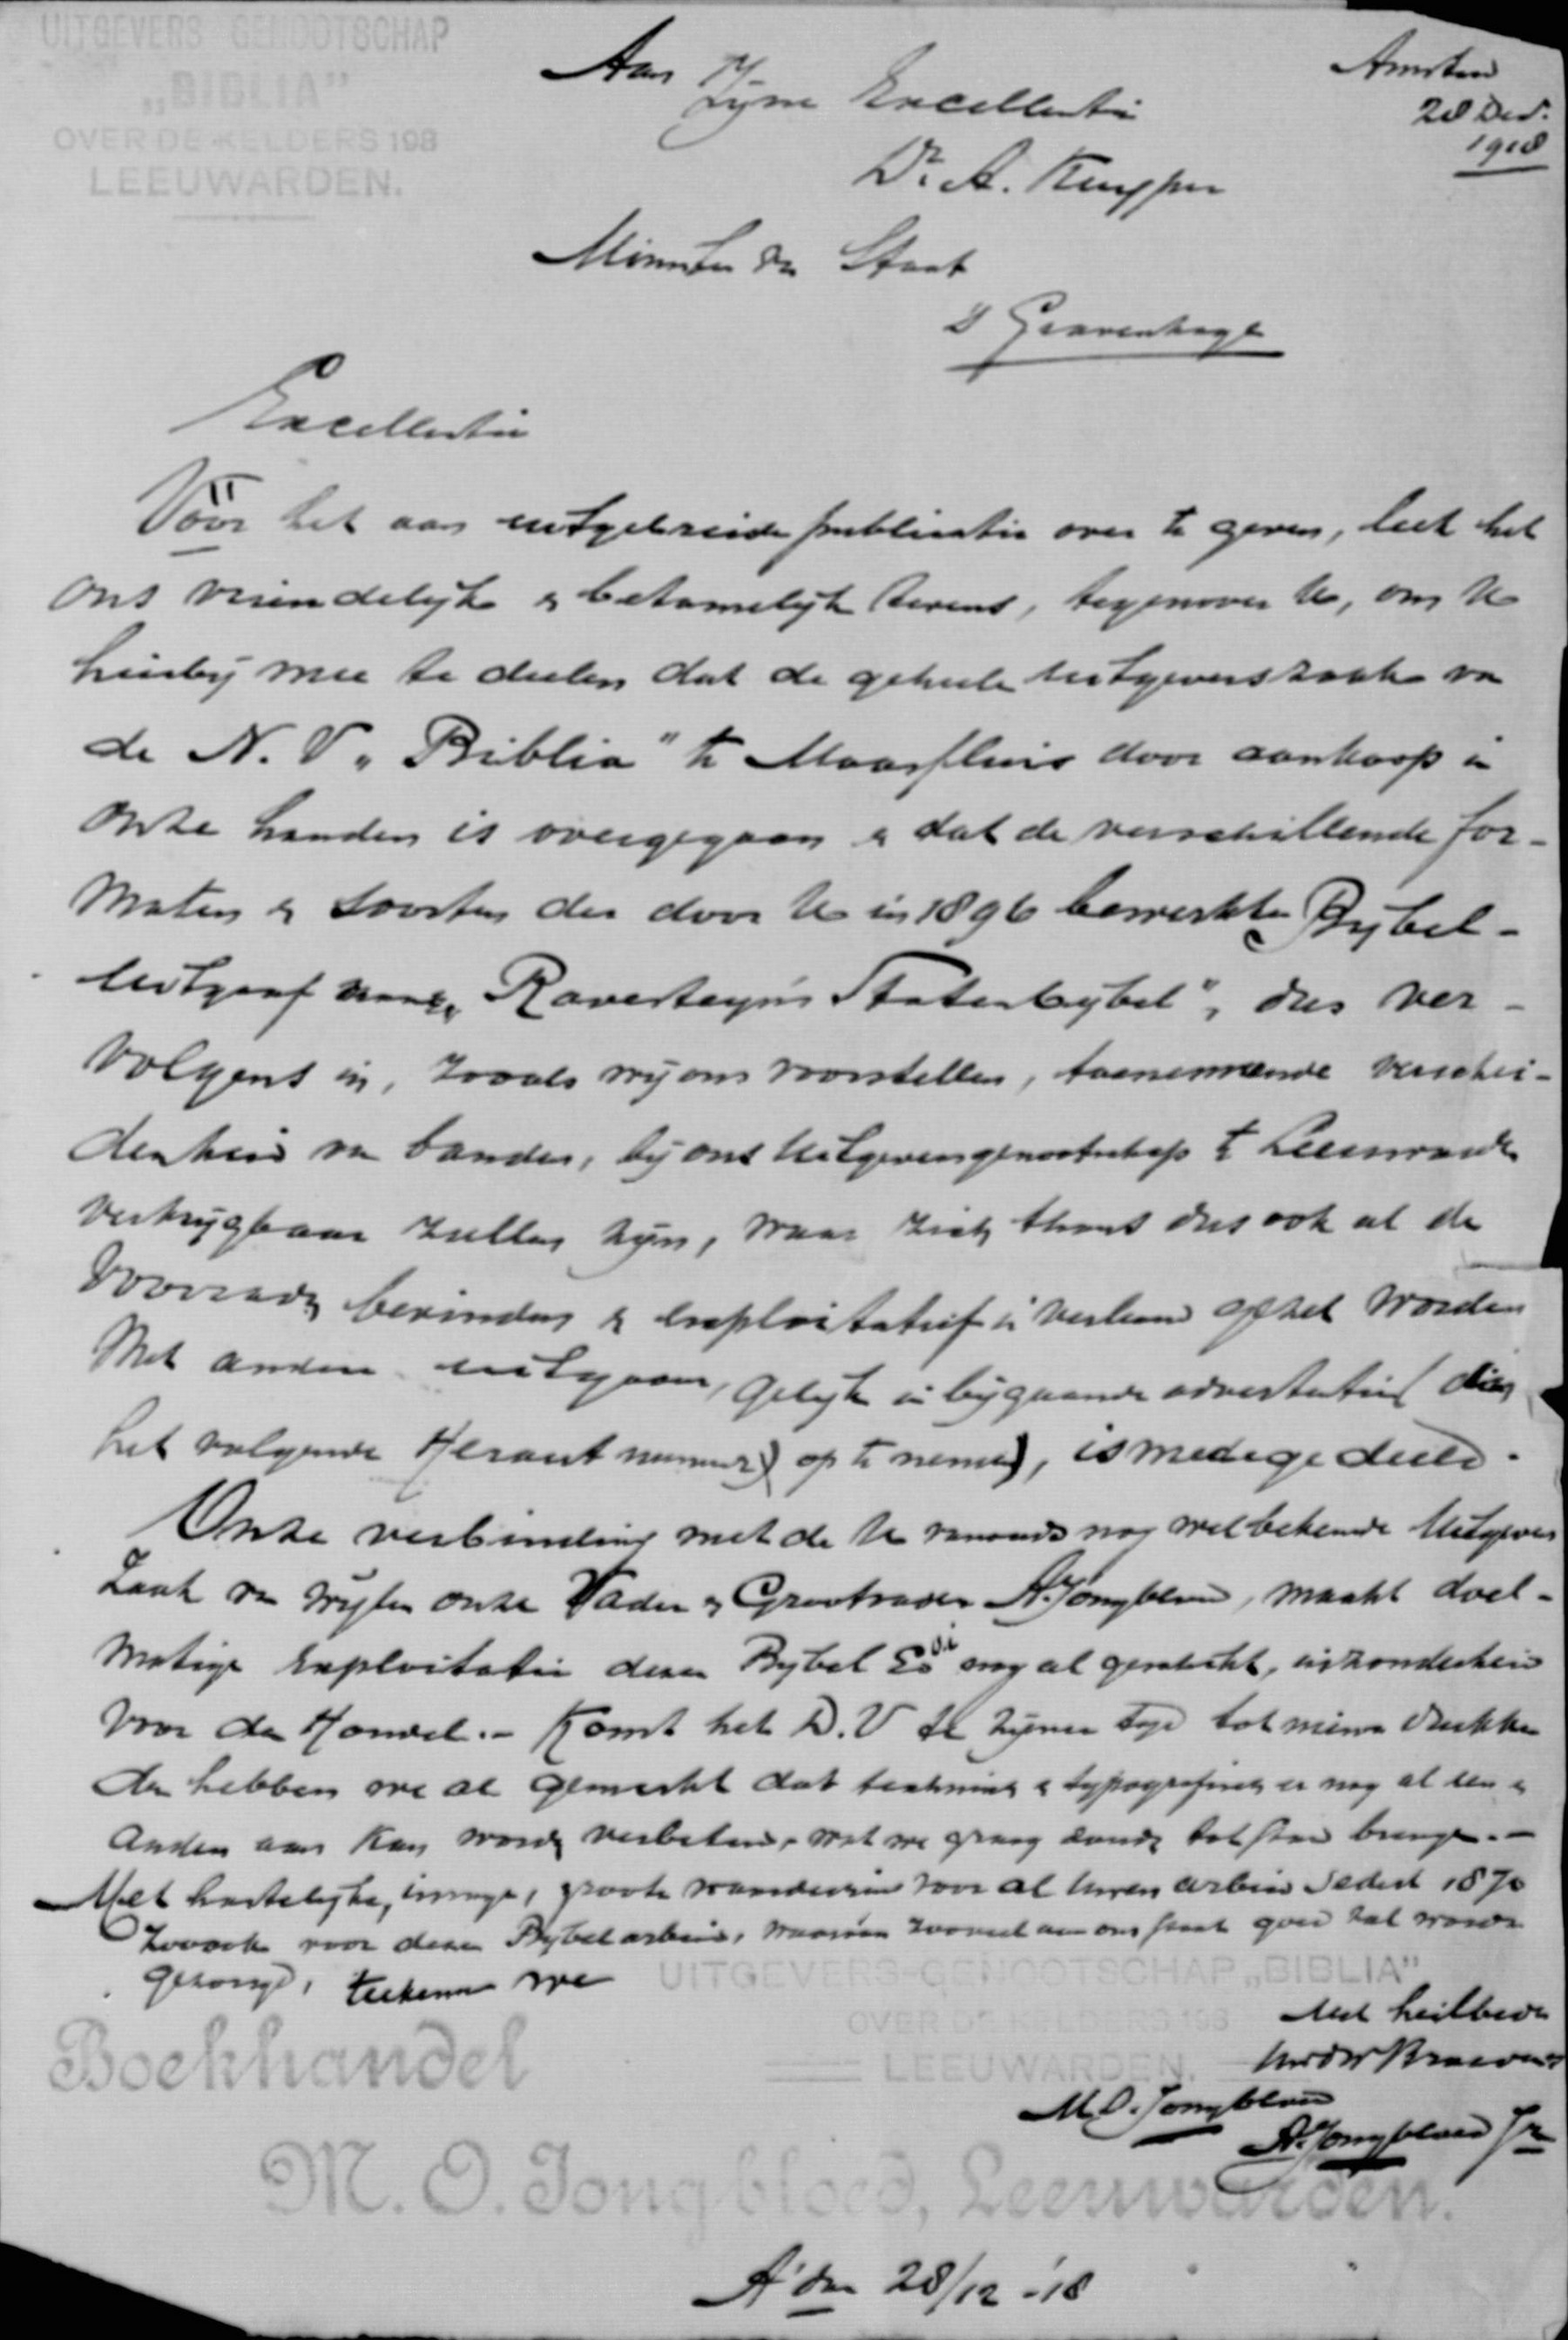 UITGEVERS GENOOTSCHAP
„BIBLIA”
OVER DE KELDERS 198
LEEUWARDEN.
Amsterd
28 Dec.
1918
Aan Zijne Excellentie
Dr. A. Kuyper
Minister van Staat
's Gravenhage
Excellentie
Vóór het aan uitgebreide publicatie over te geven, leek het
ons vriendelijk en betamelijk tevens, tegenover U, om U
hierbij mee te deelen dat de geheele uitgeverszaak van
de N. V. „Biblia" te Maassluis door aankoop in
onze handen is overgegaan en dat de verschillende for-
maten en soorten der door U in 1896 bewerkte Bijbel-
uitgaaf „Ravesteyn's Statenbijbel", dus ver-
volgens in, zooals wij ons voorstellen, toenemende verschei-
denheid van banden, bij ons Uitgeversgenootschap te Leeuwarden
verkrijgbaar zullen zijn, waar zich thans dus ook al de
voorraden bevinden en exploitatief in verband gezet worden
met andere uitgaven, gelijk in bijgaande advertentie (die in
het volgende Heraut nummer op te nemen), is medegedeeld.
Onze verbinding met de U vanouds nog welbekende Uitgevers
Zaak van wijlen onze Vader en Grootvader A. Jongbloed, maakt doel-
matige exploitatie dezer Bijbel Ed. nog al geschikt, inzonderheid
voor den Handel. – Komt het D. V. te zijner tijd tot nieuwe drukken
dan hebben we al gemerkt dat technisch en typografisch er nog al een en
ander aan kan worden verbeterd, wat we graag zouden tot stand brengen. –
Met hartelijke, innige, groote waardeering voor al Uwen arbeid sedert 1870
zoook voor dezen Bijbelarbeid, waarvoor zooveel aan ons staat goed zal worden
gezorgd, teekenen we
UITGEVERS-GENOOTSCHAP „BIBLIA”
OVER DE KELDERS 198
LEEUWARDEN.
Met heilbede
M.O. Jongbloed
A. Jongbloed Jr
Boekhandel
M. O. Jongbloed, Leeuwarden.
A'dam 28/12 -'18